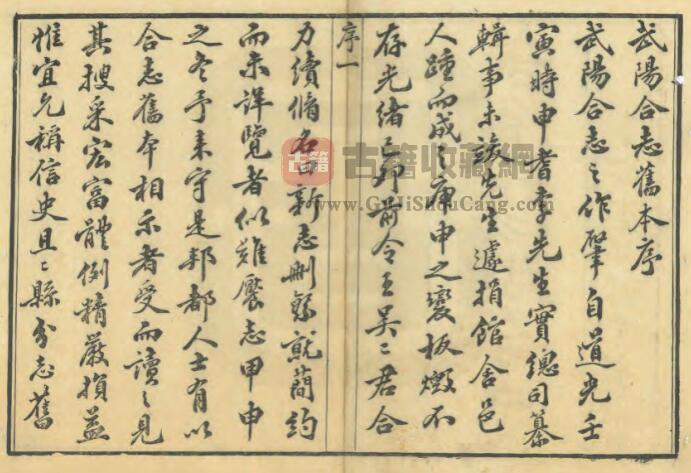 武陽合志舊本序
武陽合志之作肇自道光壬
寅時申耆李先生實總司纂
輯事未竣先生遽捐館舍邑
人踵而成之庚申之變板燬不
存光緒己卯前令王吴二君合
序一
力續脩名曰新志刪繁就蕳約
而未詳覽者似難饜志甲申
之冬予来守是邦都人士有以
合志舊本相示者受而讀之見
其搜采宏富體例精嚴損益
惟宜允稱信史且二縣分志舊
古籍
古籍收藏網
www.GuJiShouCang.com